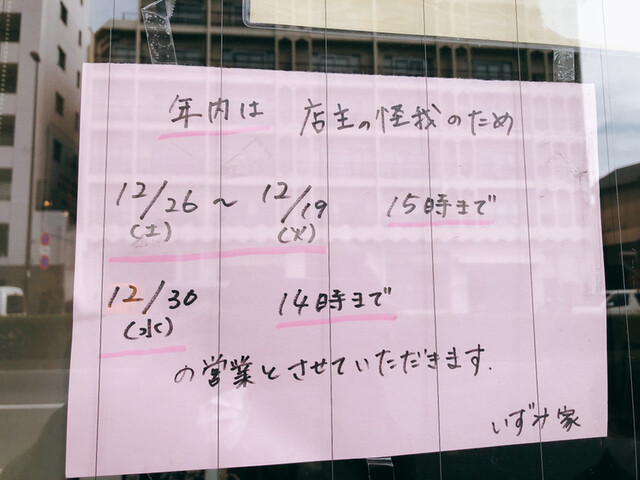 年内は 店主の怪我のため
12/26 ~ 12/19 15時まで
(土) (火)
12/30 14時まで
(水)
の営業とさせていただきます.
いずみ家